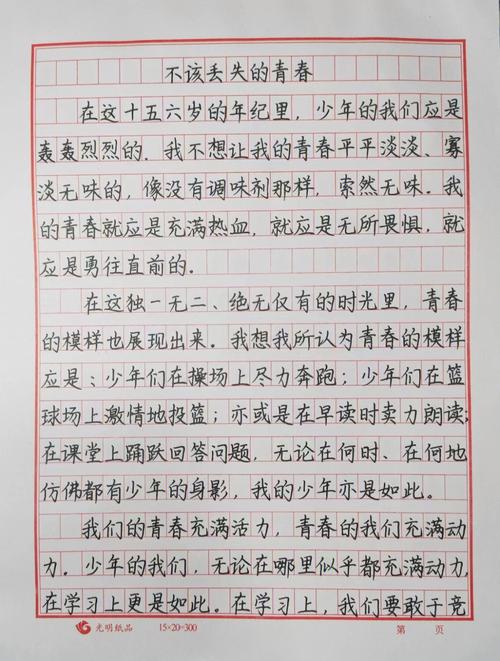 不该丢失的青春
在这十五六岁的年纪里，少年的我们应是
轰轰烈烈的．我不想让我的青春平平淡淡、寡
淡无味的，像没有调味剂那样，索然无味。我
的青春就应是充满热血，就应是无所畏惧，就
应是勇往直前的．
在这独一无二、绝无仅有的时光里，青春
的模样也展现出来。我想我所认为青春的模样
应是：少年们在操场上尽力奔跑；少年们在篮
球场上激情地投篮；亦或是在早读时卖力朗读；
在课堂上踊跃回答问题，无论在何时、在何地
仿佛都有少年的身影，我的少年亦是如此。
我们的青春充满活力，青春的我们充满动
力．少年的我们，无论在哪里似乎都充满动力，
在学习上更是如此。在学习上，我们要敢于竞
光明纸品 15×20=300 第 页